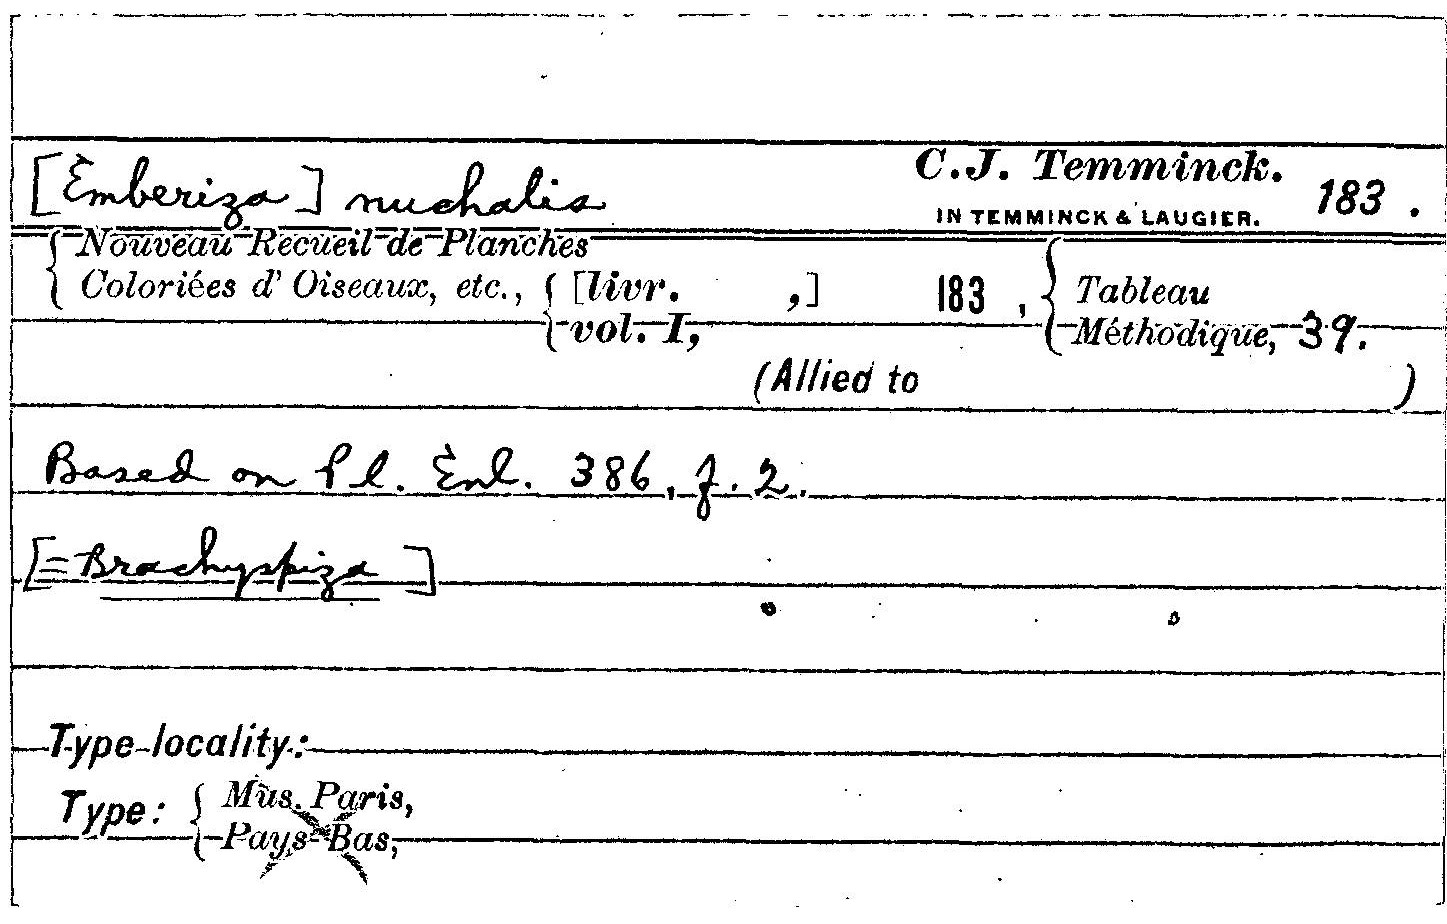 [Emberiza] nuchalis C.J. Temminck. 183.
IN TEMMINCK & LAUGIER.
Nouveau Recueil de Planches
Coloriées d' Oiseaux, etc., { [livr. ,] 183 , { Tableau
vol. I, Méthodique, 39.
(Allied to )
Based on Pl. Enl. 386, f. 2.
[= Brachyspiza ]
Type locality:
Type: { Mus. Paris,
Pays-Bas,